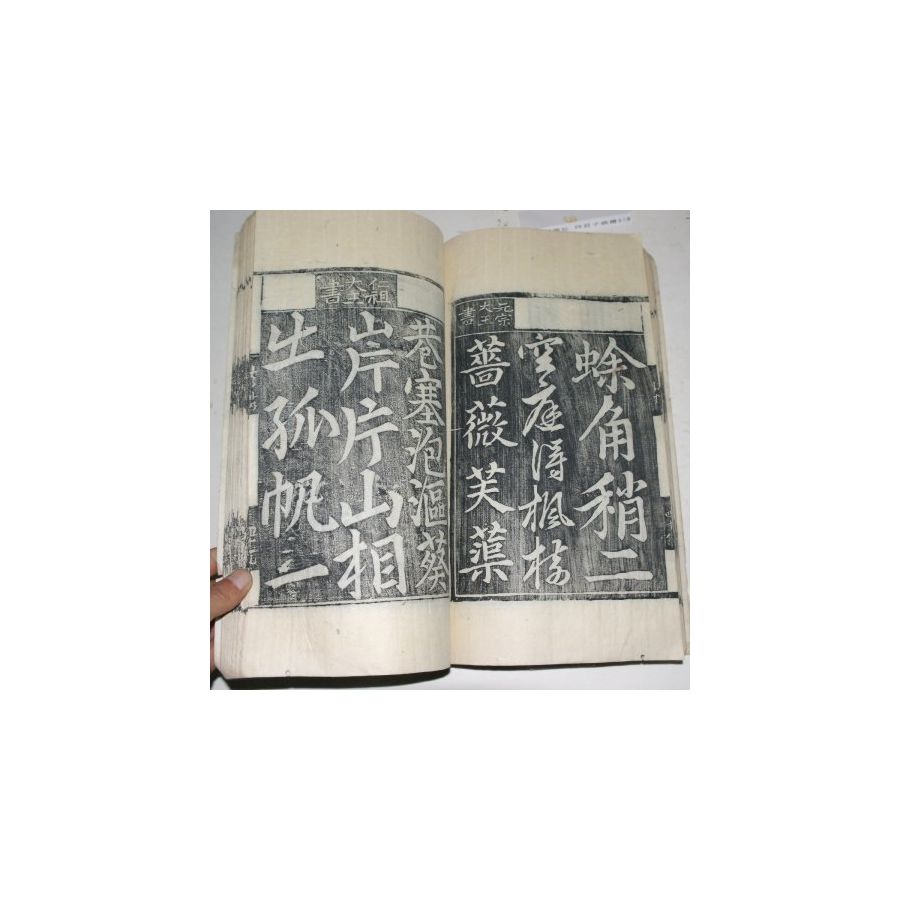 蜍角稍二
元宗
大王
書
空庭得楓梅
薔薇芙蕖
仁祖
大王
書
巷塞泡漚葵
岸片片山相
出孤帆一